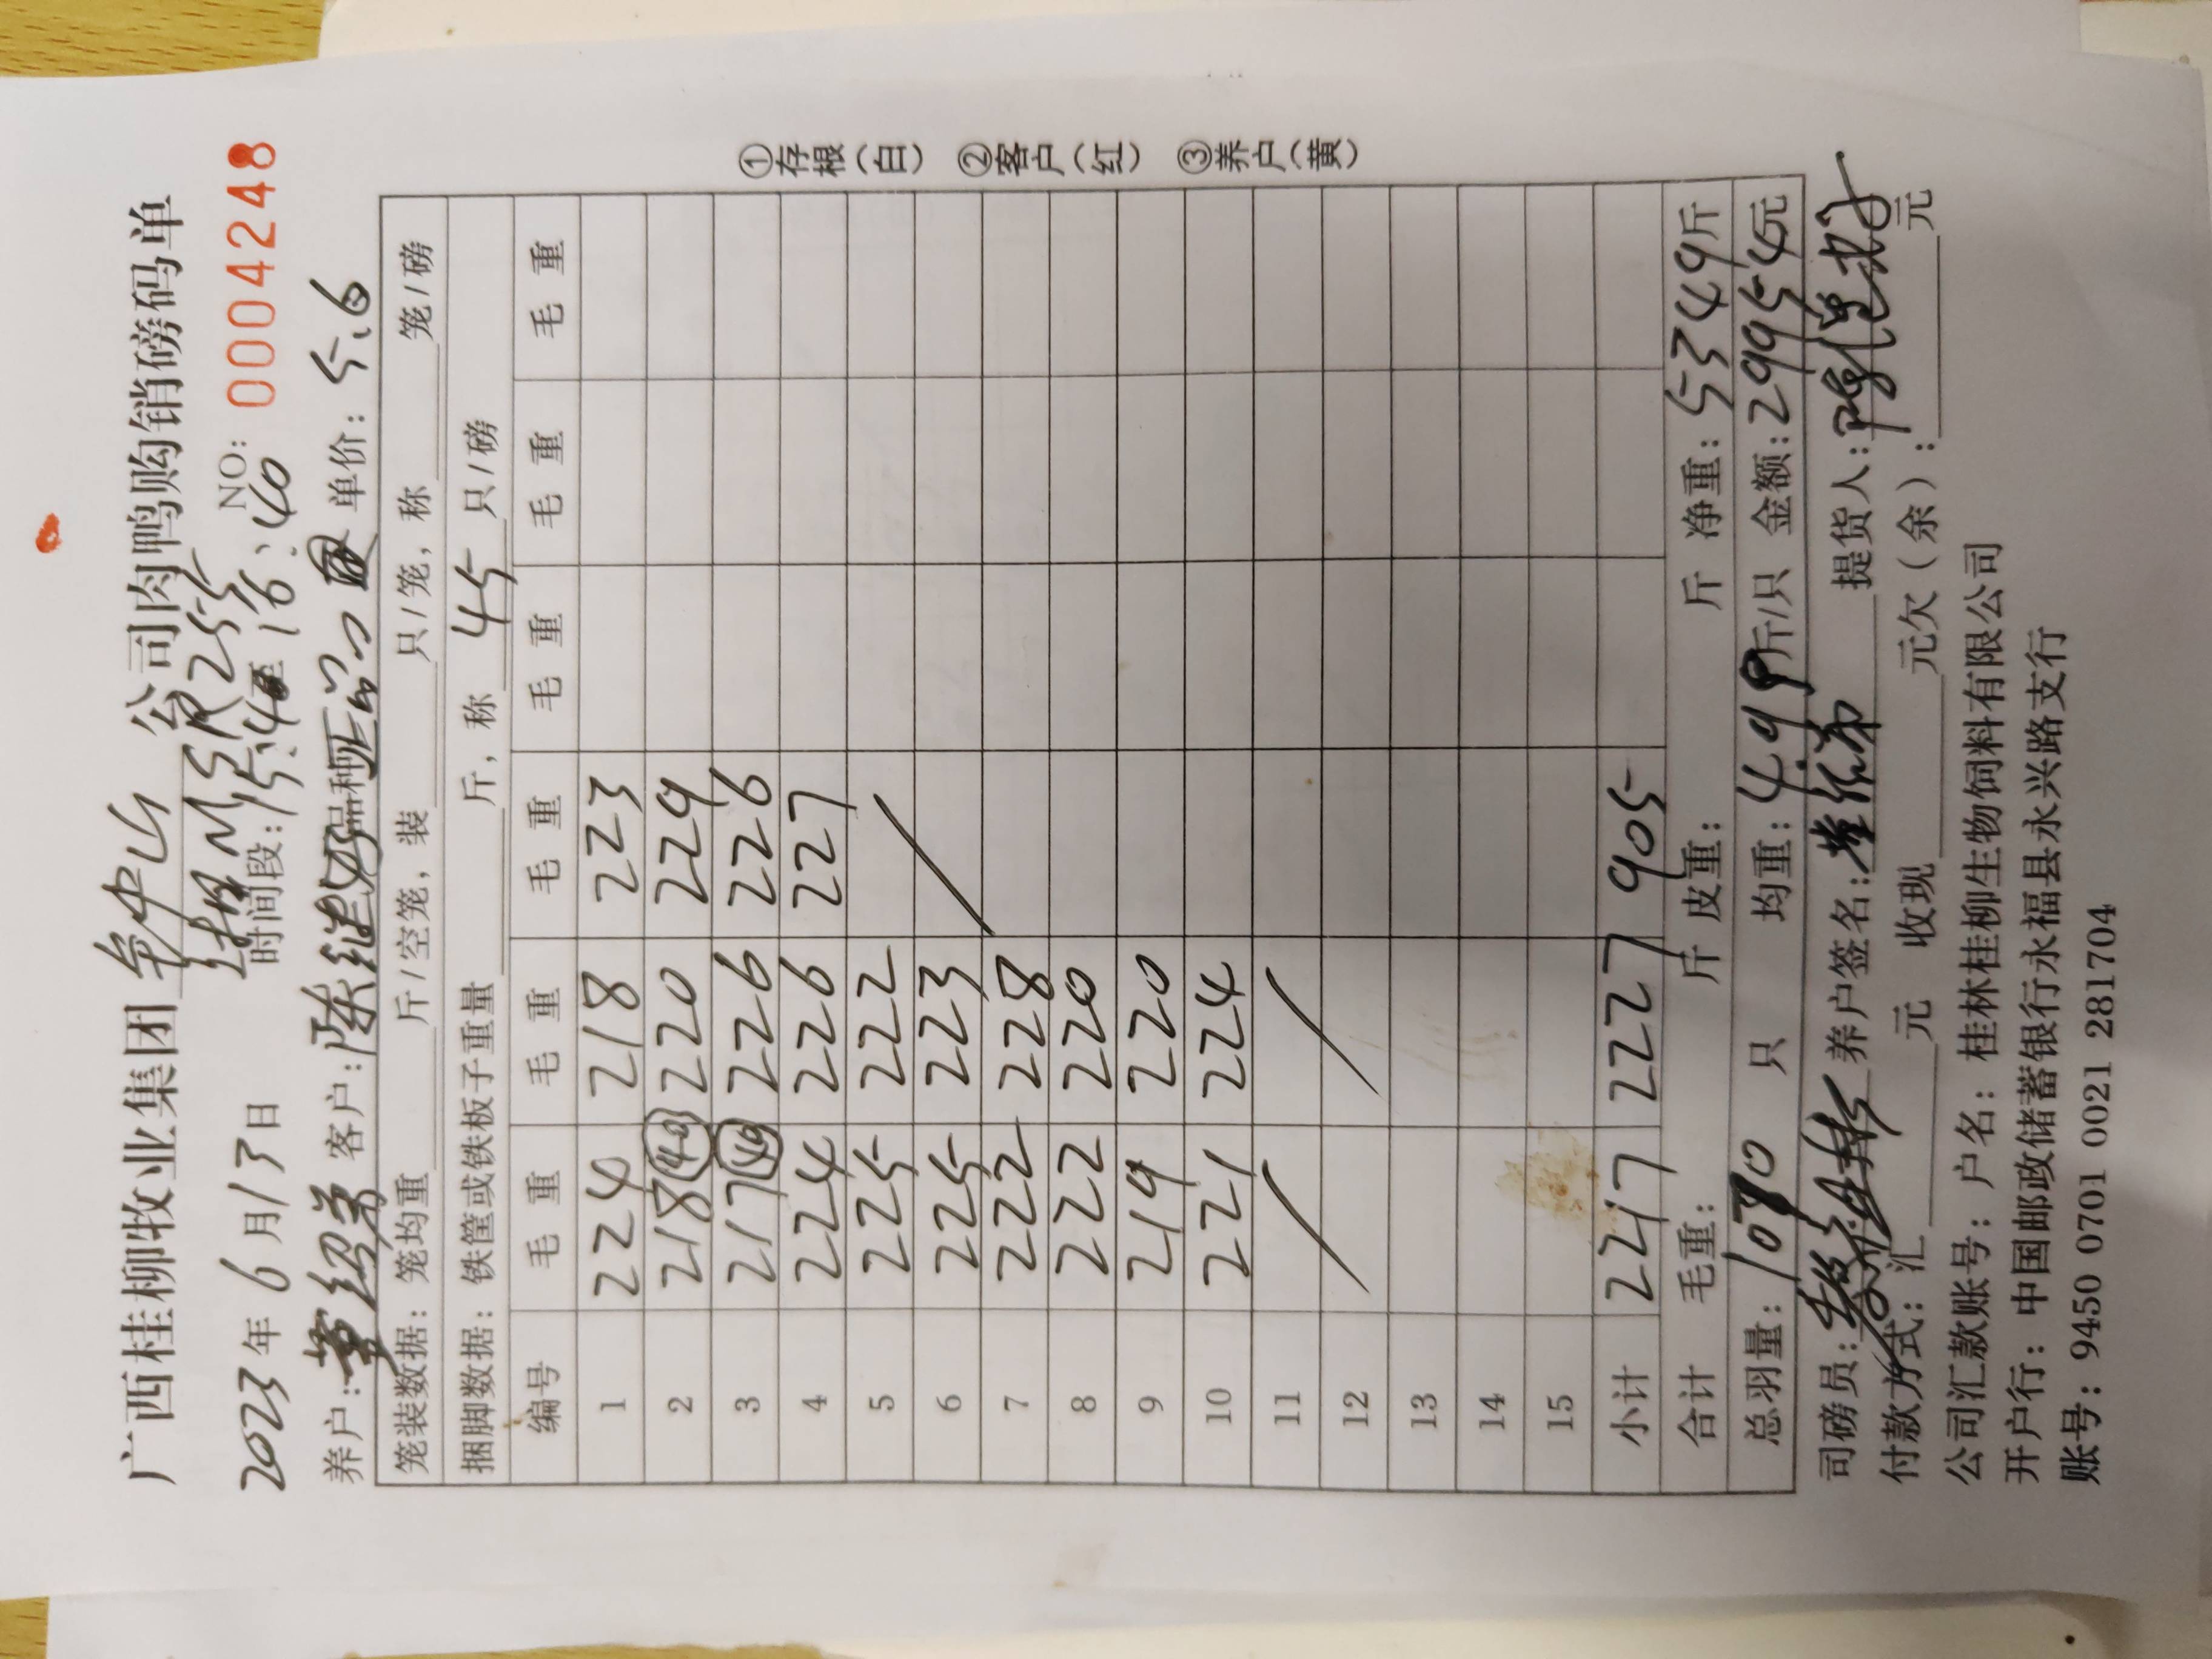 广西桂柳牧业集团 钟山 公司肉鸭购销磅码单
桂MSR255
2023年6月13日 时间段:15:40至16:40 NO: 00042 48
养户: 客户:陈 品种 单价: 5.6
笼装数据: 笼均重 斤/空笼, 装 只/笼, 称 笼/磅
捆脚数据: 铁筐或铁板子重量 斤, 称 45 只/磅
编号 毛重 毛重 毛重 毛重 毛重 毛重
1 224 218 223
2 218 (40) 220 229
3 217 (40) 226 226
4 224 226 227
5 225 222
6 225 223
7 222 228
8 222 220
9 219 220
10 221 224
11
12
13
14
15
小计 2217 2227 905
合计 毛重: 斤 皮重: 斤 净重: 5349斤
总羽量: 1070 只 均重: 4.99斤/只 金额: 29954元
司磅员: 养户签名: 提货人:
付款方式: 汇 元 收现 元欠(余): 元
公司汇款账号: 户名: 桂林桂柳生物饲料有限公司
开户行: 中国邮政储蓄银行永福县永兴路支行
账号: 9450 0701 0021 281704
①存根(白) ②客户(红) ③养户(黄)